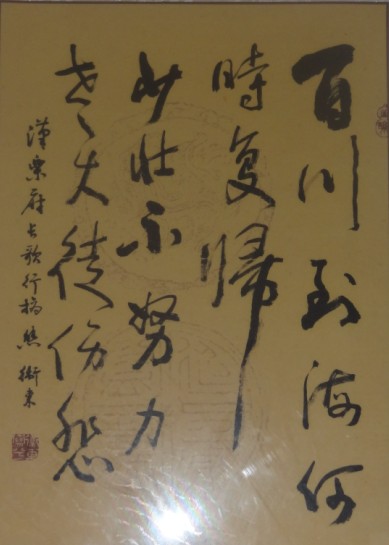 百川到海何
時复歸
少壮不努力
老大徒伤悲
漢樂府長歌行摘 熊衛東